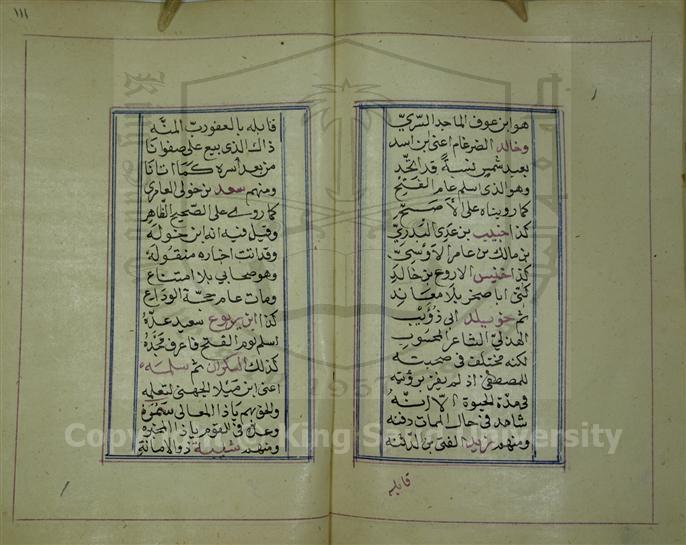 هو ابن عوف الماجد السّريّ
وخالد الضرغام اعنى ابن اسد
بعبد شمس نسبة قد اتّحد
وهو الذى اسلم عام الفتح
كما رويناه على الأصحّ
كذا خبيب بن عدى البدرىّ
بن مالك بن عامر الاوسىّ
كذا خنيس الاروع بن خالد
كنى ابا صخر بلا معاند
ثم خويلد ابى ذؤيب
الهذلى الشاعر المحسوب
لكنه مختلف فى صحبته
للمصطفى اذ لم يفز برؤيته
فى مدّة الحيوة الّا انّه
شاهد فى حال الممات دفنه
ومنهم زيد الفتى بن الدثنه
قابله
١١١
قابله بالعفو ربّ المنّه
ذاك الذى بيع على صفوانا
من بعد أسره كما اتانا
ومنهم سعد بن خولى العامرى
كما روى على الصّحيح الظّاهر
وقيل فيه انه ابن خوله
وقد اتت اخباره منقوله
وهو صحابى بلا امتناع
ومات عام حجّة الوداع
كذا ابن يربوع سعيد عدّه
اسلم يوم الفتح فاعرف مجده
كذلك السكران ثم سلمه
اعنى ابن ميلا الجهنى
والحق بهم ياذا المعالى سمره
وعدّه فى القوم ياذا
ومنهم شيبة ذو الامانه
Copyright © King Saud University
King Saud University
1957